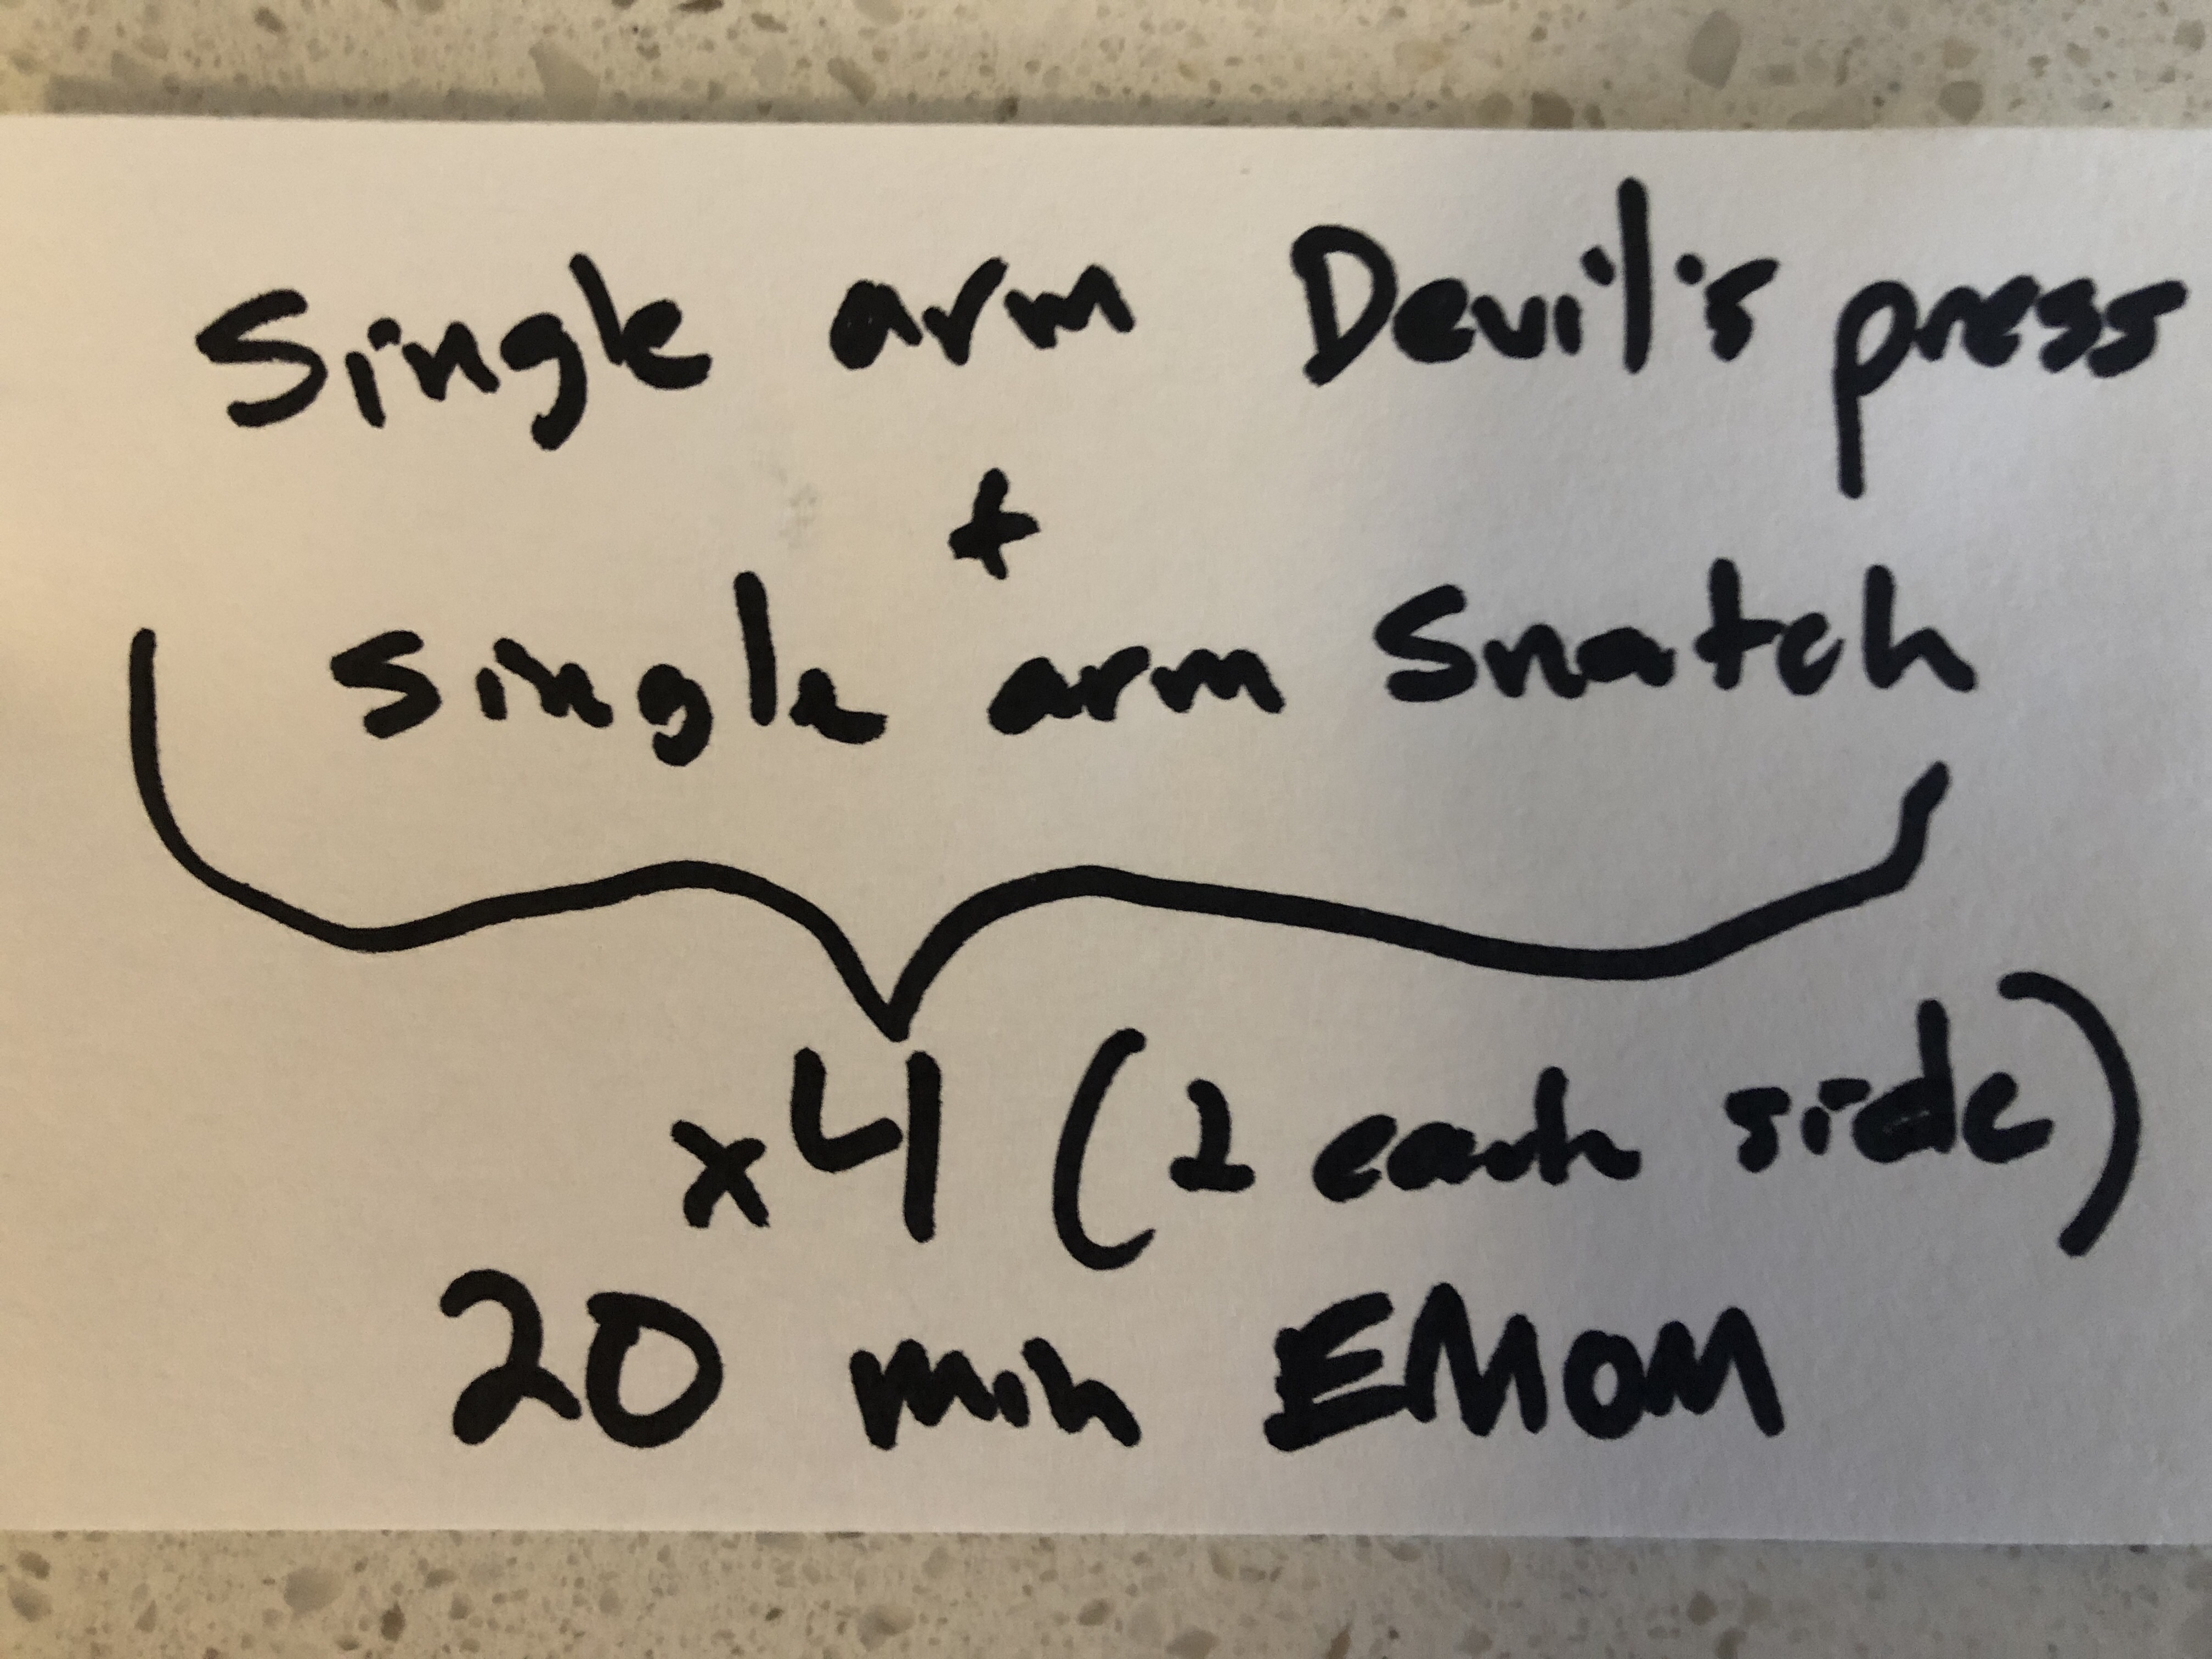 Single arm Devil's press
+
single arm Snatch
x4 (2 each side)
20 min EMOM